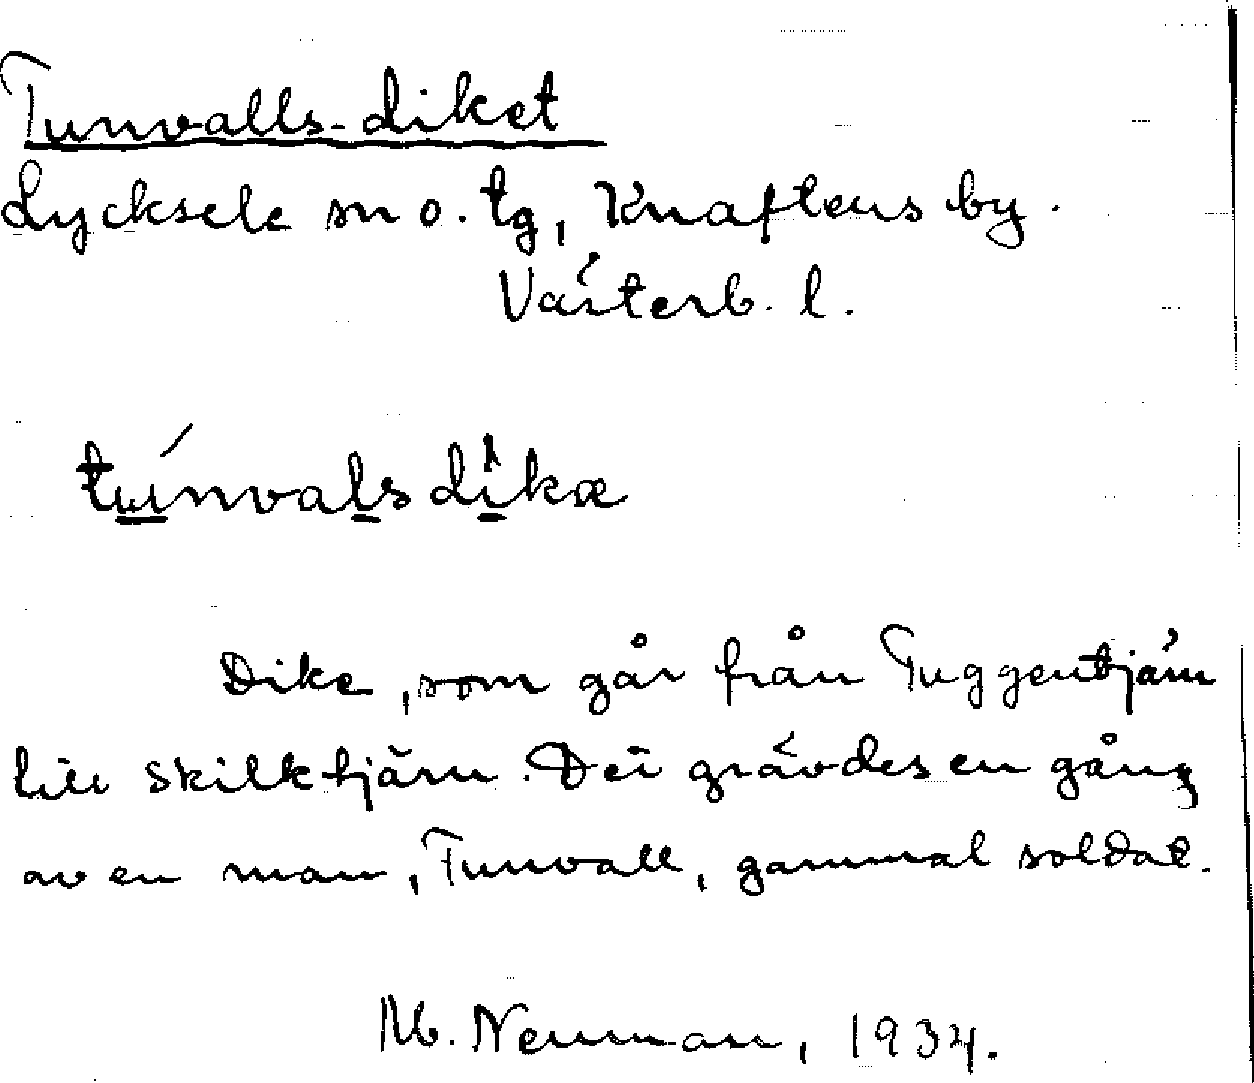 Tunvalls-diket
Lycksele sn o. tg, Knaftens by.
Västerb. l.
túnvalsdìkæ
Dike, som går från Tuggentjärn
till Skilktjärn. Det grävdes en gång
av en man, Tunvall, gammal soldat.
M. Neuman, 1934.